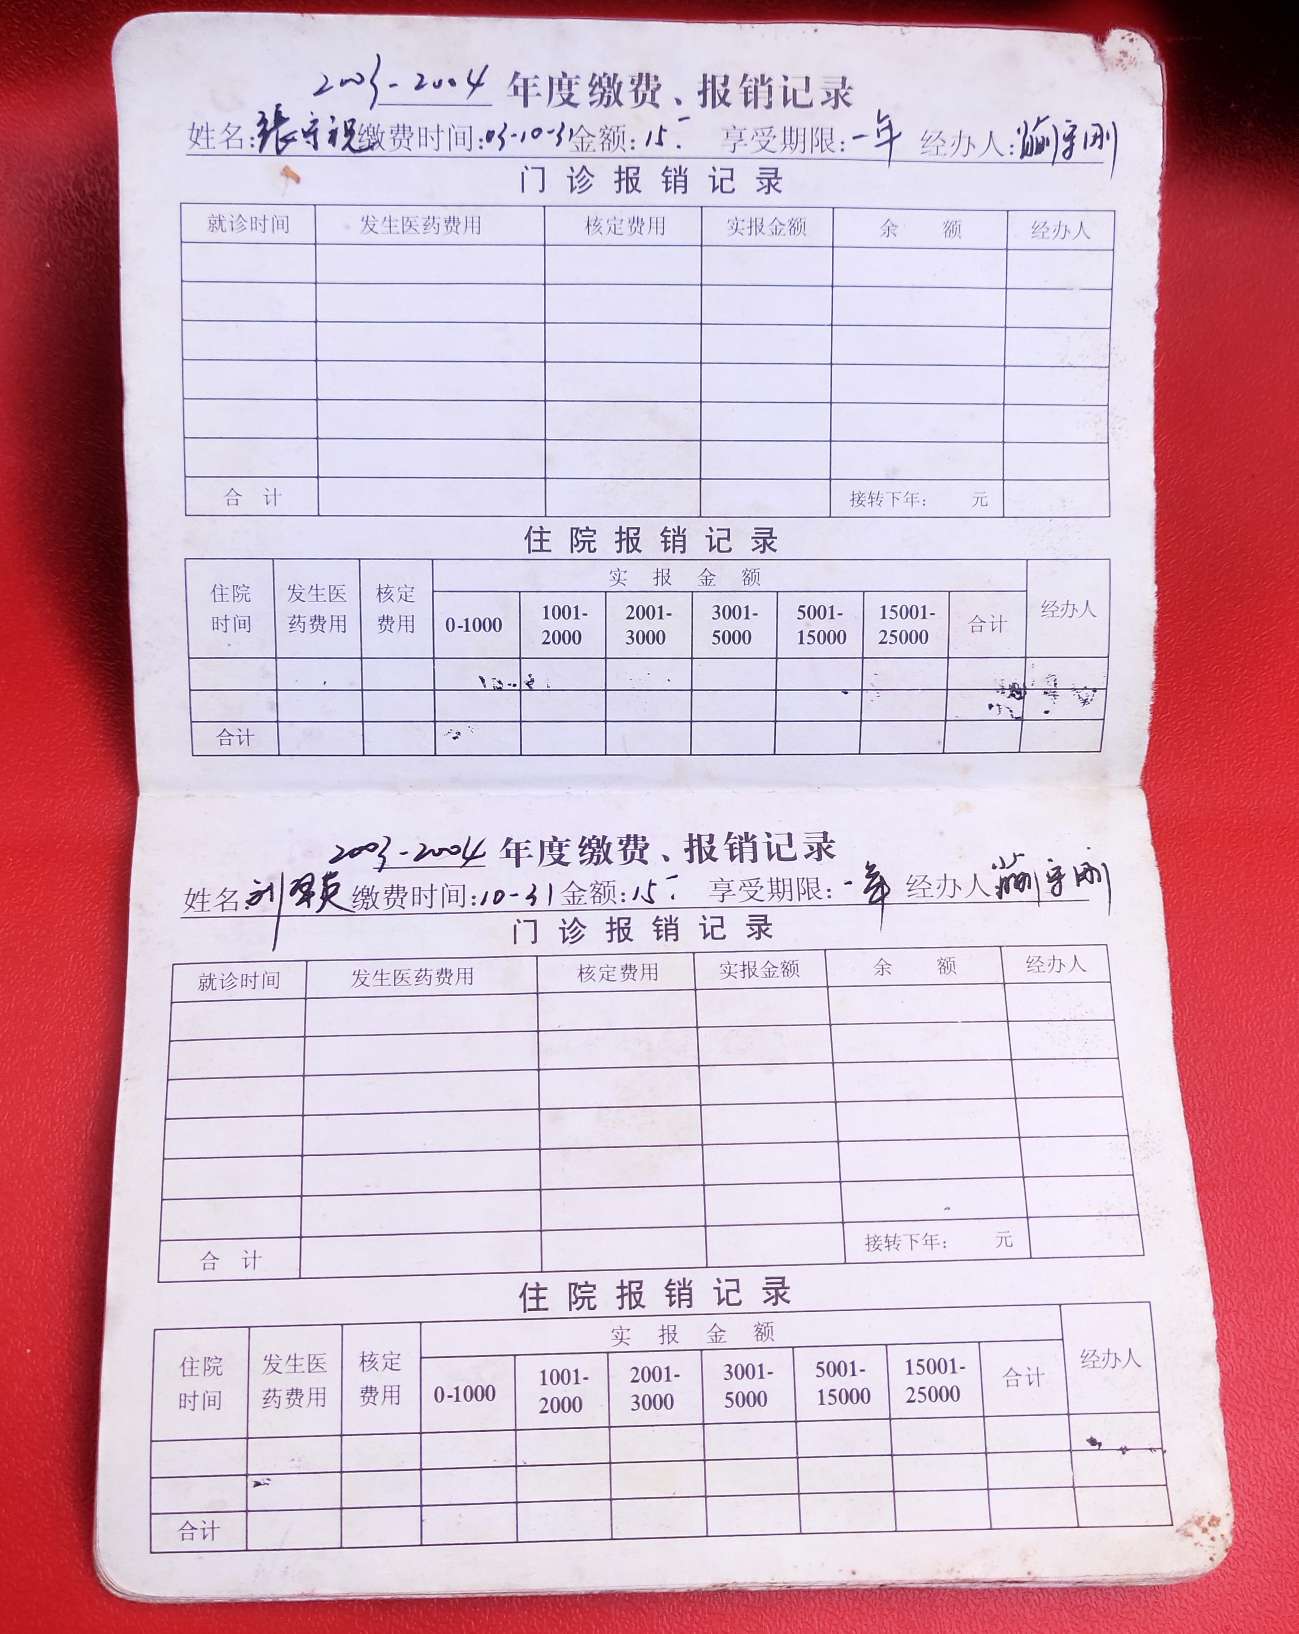 2003-2004 年度缴费、报销记录
姓名:张守祝 缴费时间:03-10-31 金额:15.- 享受期限:一年 经办人:守刚
门诊报销记录
就诊时间 发生医药费用 核定费用 实报金额 余 额 经办人
合 计 接转下年: 元
住院报销记录
住院时间 发生医药费用 核定费用 实报金额 经办人
0-1000 1001-2000 2001-3000 3001-5000 5001-15000 15001-25000 合计
合计
2003-2004 年度缴费、报销记录
姓名:刘英 缴费时间:10-31 金额:15.- 享受期限:一年 经办人:守刚
门诊报销记录
就诊时间 发生医药费用 核定费用 实报金额 余 额 经办人
合 计 接转下年: 元
住院报销记录
住院时间 发生医药费用 核定费用 实报金额 经办人
0-1000 1001-2000 2001-3000 3001-5000 5001-15000 15001-25000 合计
合计